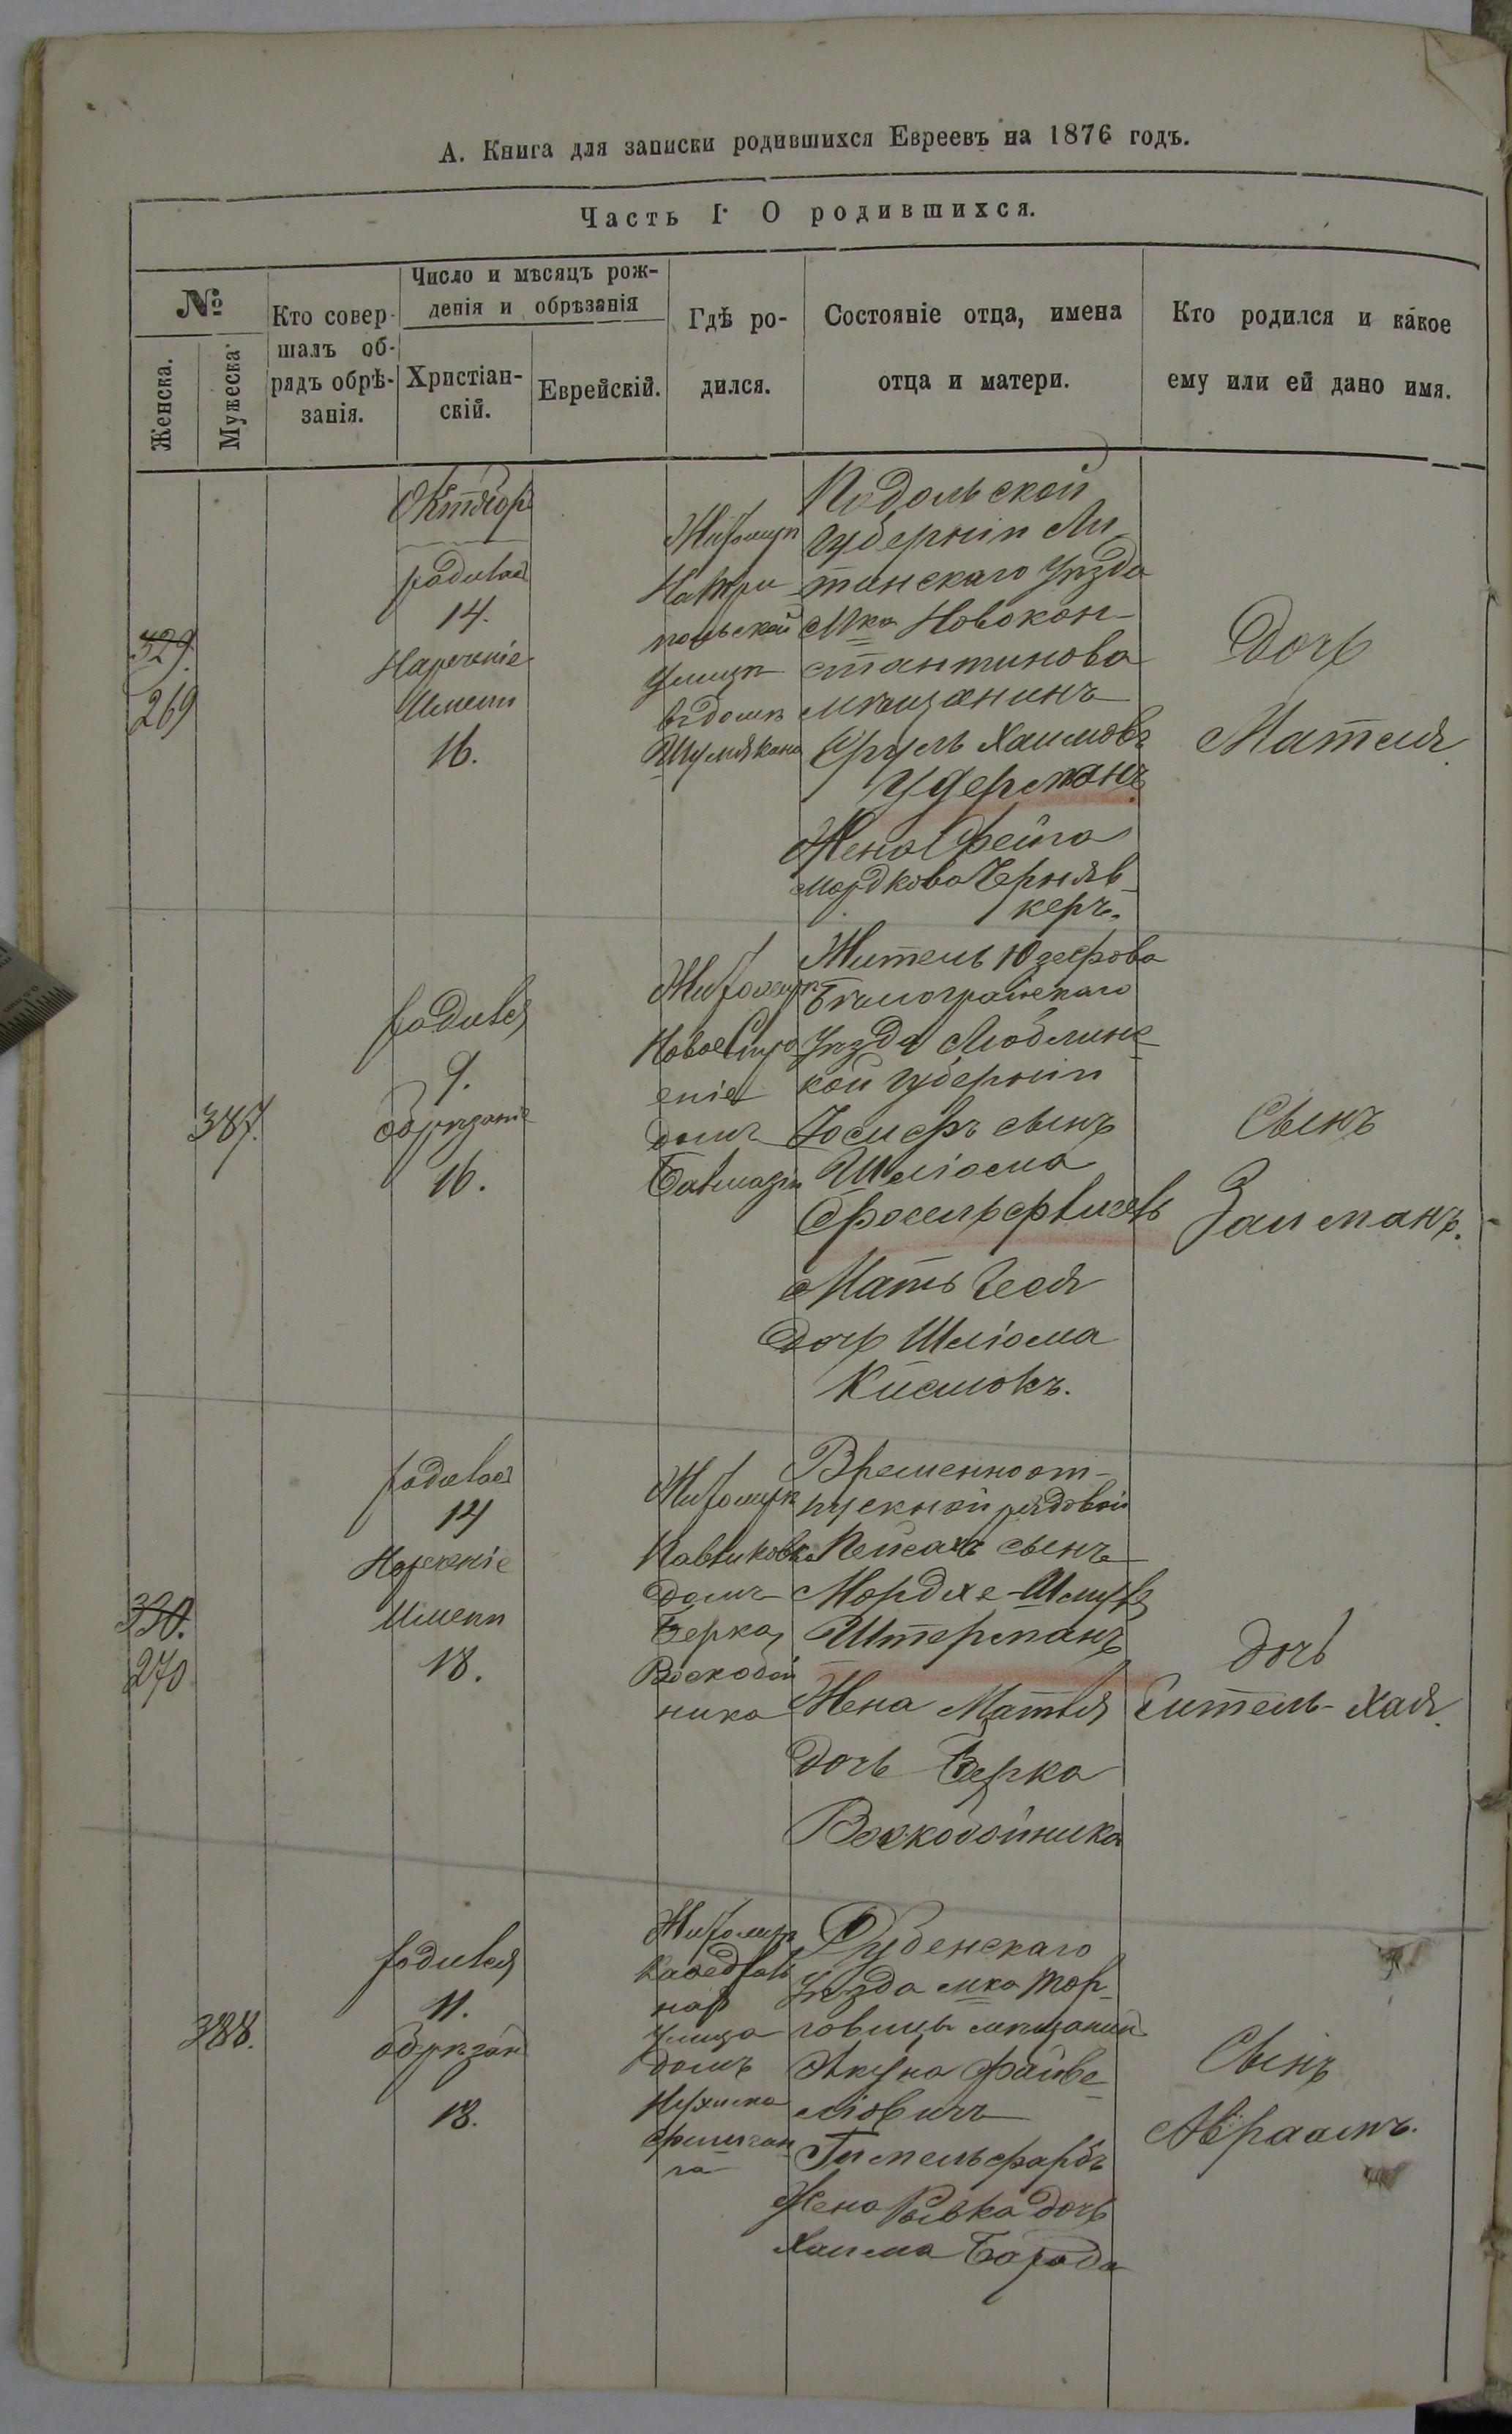 А. Книга для записки родившихся Евреевъ на 1876 годъ.
Часть I О родившихся.
№
Женска.
Мужеска
Кто совер-
шалъ об-
рядъ обрѣ-
занія.
Число и мѣсяцъ рож-
денія и обрѣзанія
Христіан-
скій.
Еврейскій.
Гдѣ ро-
дился.
Состояніе отца, имена
отца и матери.
Кто родился и какое
ему или ей дано имя.
329.
269
Октябр
родилась
14.
Нареченіе
Имени
16.
Житомир
польской
улицѣ
въ домѣ
Подольской
Губерніи Ли-
тинскаго Уѣзда
Мка Новокон-
стантинова
мѣщанинъ
Сруль Хаимовъ
Удерманъ
Жена Фейга
Мордкова Черняв-
керъ.
Дочь
Матля.
387.
родился
9.
обрѣзаніе
16.
Житомир
Новое Стро
еніе
домъ
Житель Юзефова
Бѣлограйскаго
Уѣзда Люблинс-
кой Губерніи
Іосифъ сынъ
Шліома
Мать Чеся
дочь Шліома
Сынъ
Займанъ.
330.
270
родилась
14
Нареченіе
Имени
18.
Житомир
Павликовка
домъ
Берка
Воскобой
ника
Временноот-
пускной рядовой
Пейсахъ сынъ
Мордхе-Шмуля
Штерманъ
Жена Матля
дочь Берка
Воскобойника
дочь
Ситель-Хая.
388.
родился
11.
обрѣзан
18.
Житомир
Каѳедраль
ная
улица
домъ
Дубенскаго
Уѣзда мка Тор-
говицы мѣщанин
Акуна Файве-
ліовичъ
Гимельфарбъ
Жена Ривка дочь
Хаима Борода
Сынъ
Авраамъ.